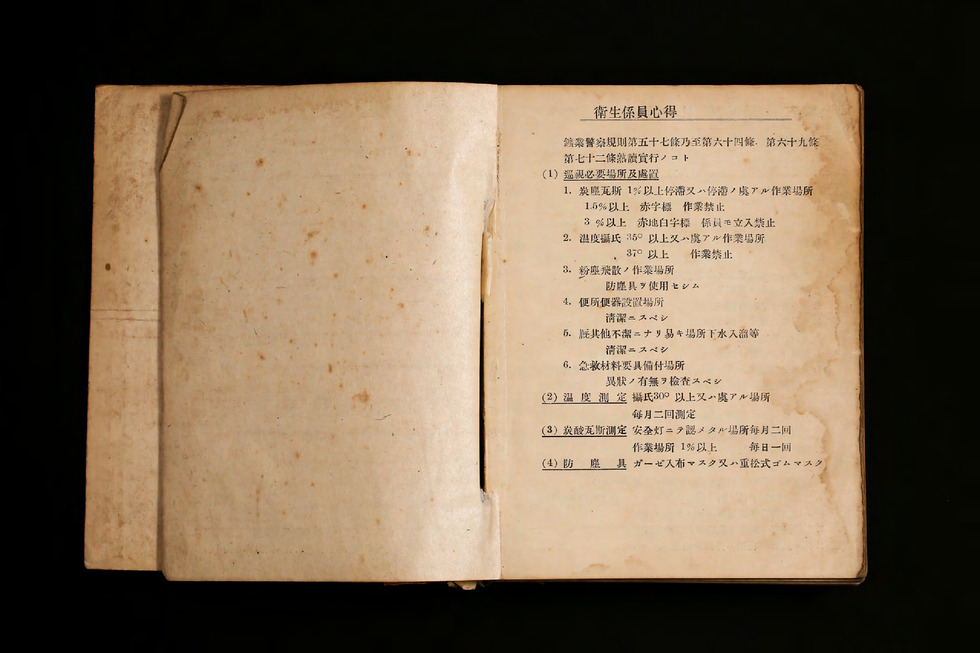 衛生係員心得
鑛業警察規則第五十七條乃至第六十四條、第六十九條
第七十二條熟讀實行ノコト
(1) 巡視必要場所及處置
1. 炭塵瓦斯 1%以上停滯又ハ停滯ノ虞アル作業場所
1.5%以上 赤字標 作業禁止
3 %以上 赤地白字標 係員モ立入禁止
2. 溫度攝氏 35° 以上又ハ虞アル作業場所
37° 以上 作業禁止
3. 粉塵飛散ノ作業場所
防塵具ヲ使用セシム
4. 便所便器設置場所
淸潔ニスベシ
5. 厩其他不潔ニナリ易キ場所下水入溜等
淸潔ニスベシ
6. 急救材料要具備付場所
異狀ノ有無ヲ檢査スベシ
(2) 溫度測定 攝氏30° 以上又ハ虞アル場所
每月二回測定
(3) 炭酸瓦斯測定 安全灯ニテ認メタル場所每月二回
作業場所 1%以上 每日一回
(4) 防塵具 ガーゼ入布マスク又ハ重松式ゴムマスク